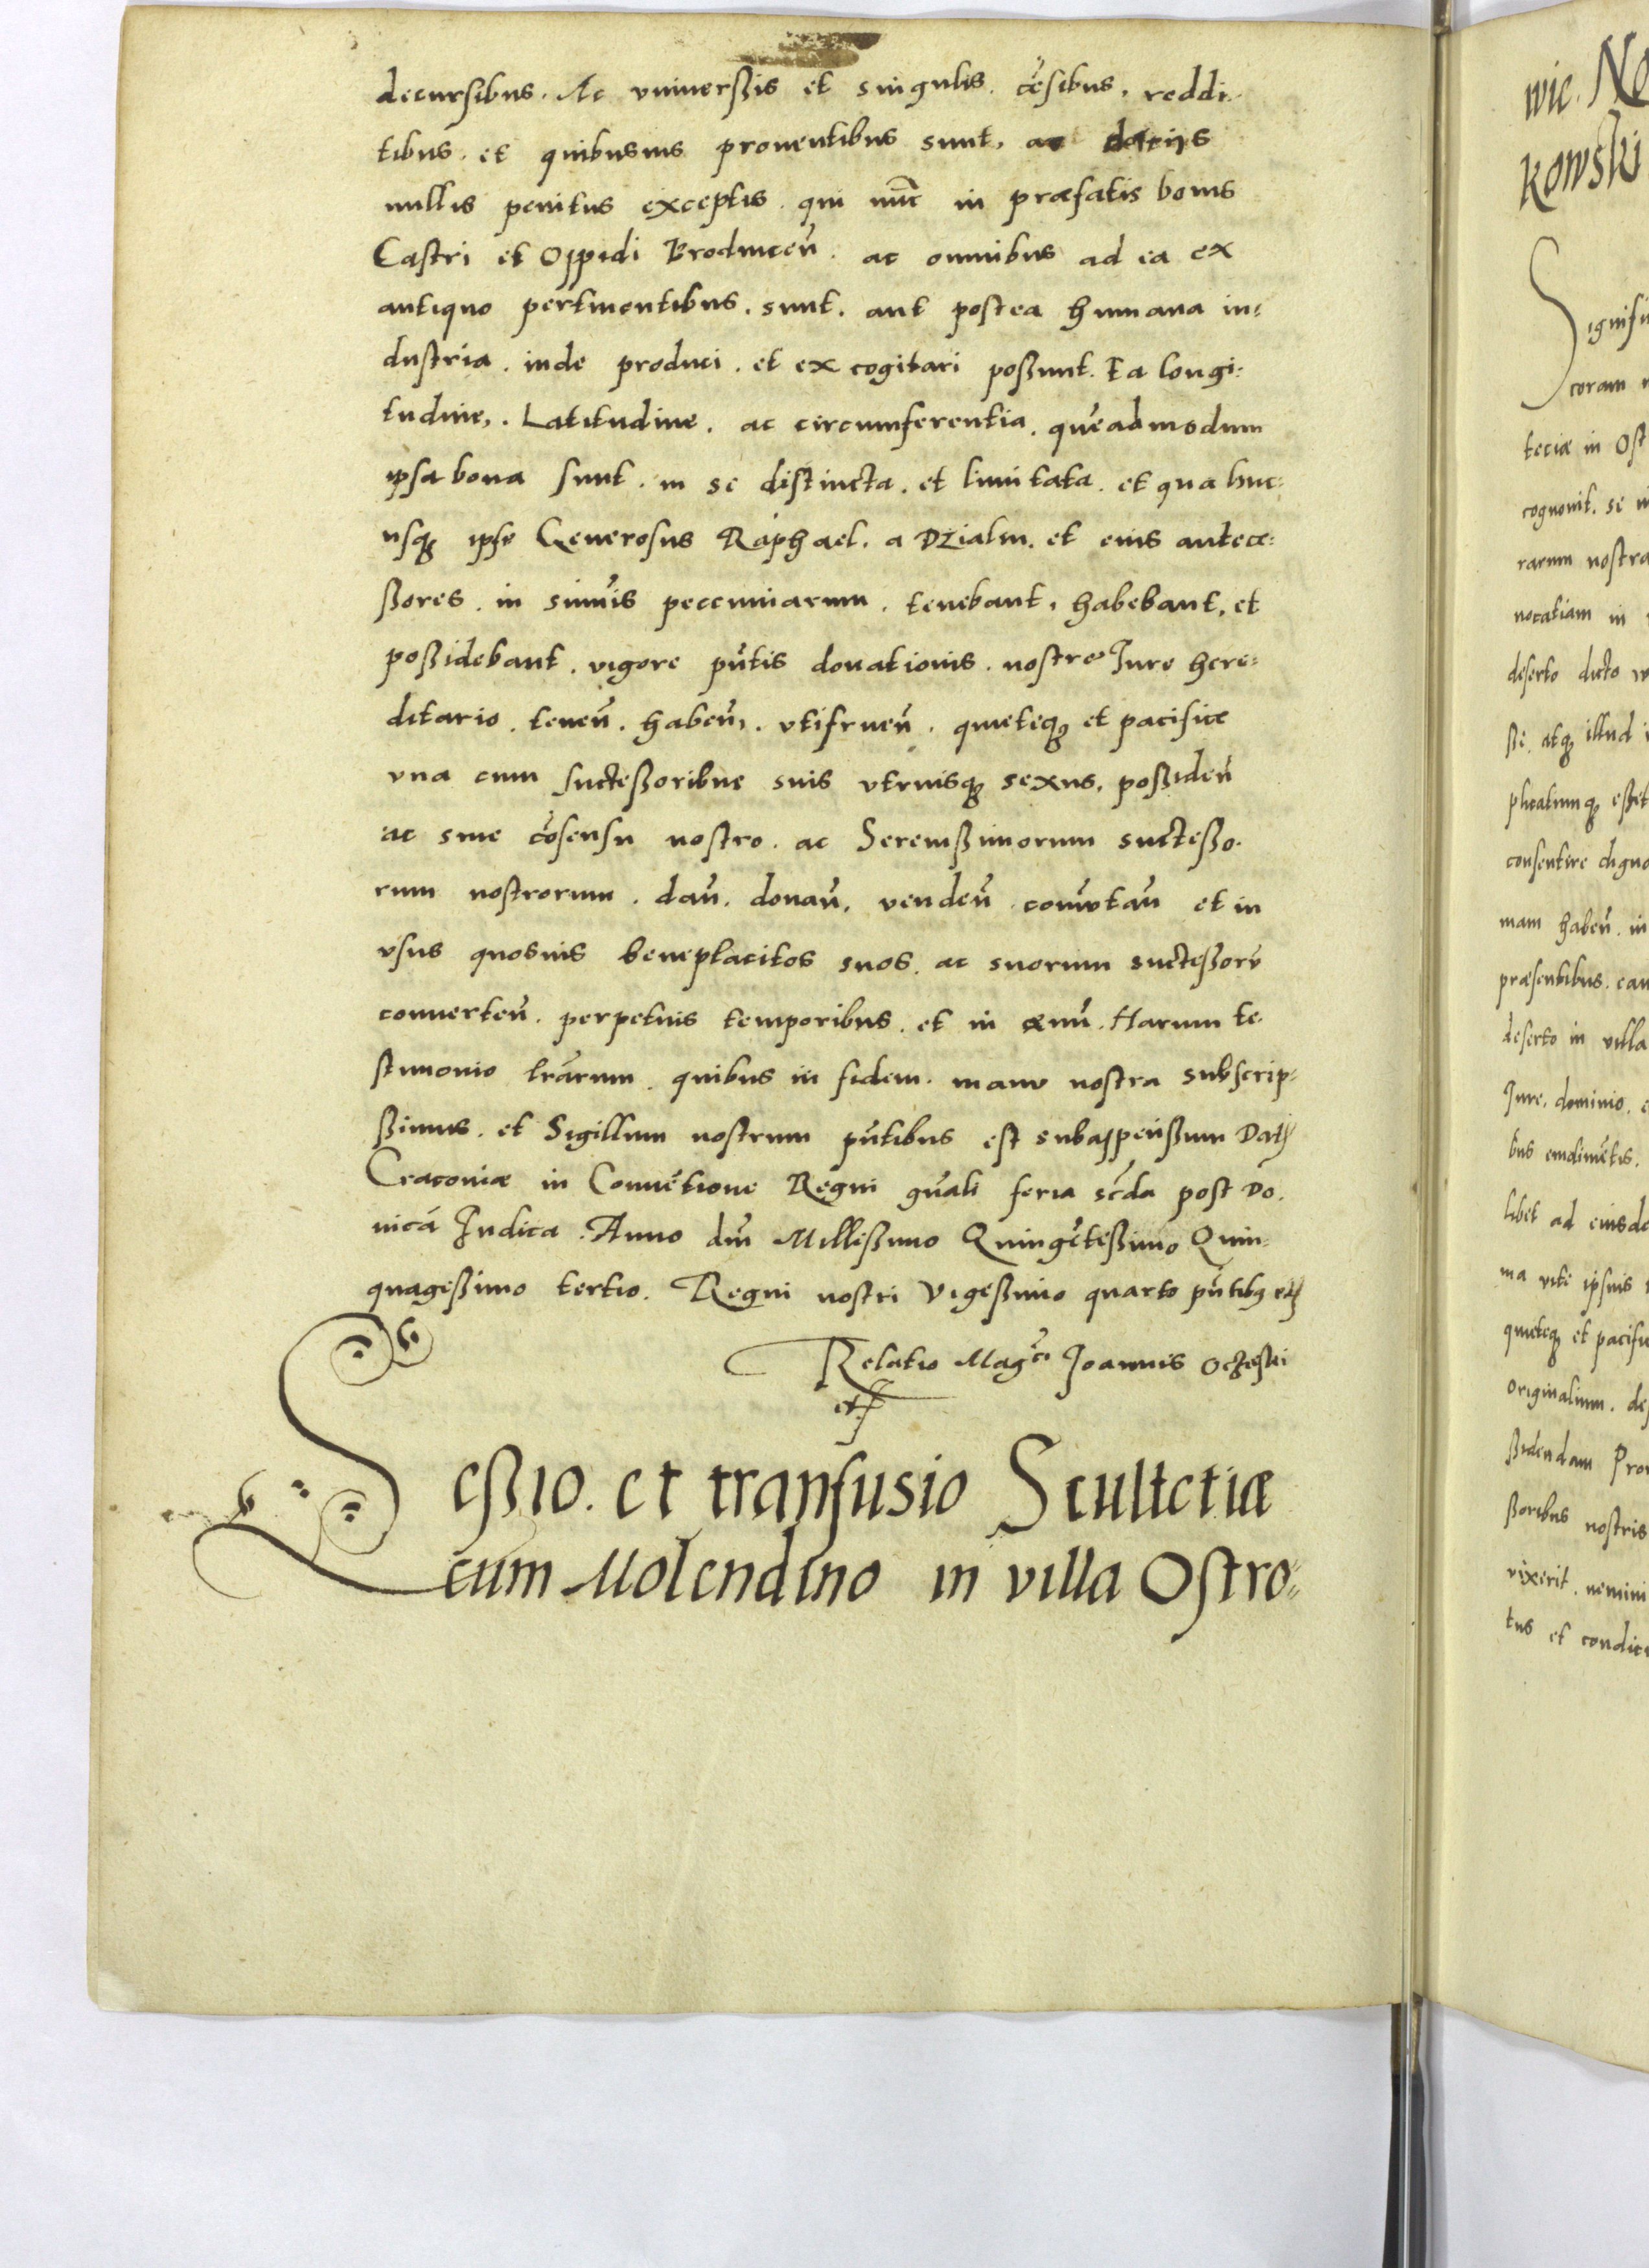 decursibus. Ac vniuerßis et singulis. cẽsibus, reddi-
tibus. et quibusuis prouentibus sunt, ac datijs
nullis penitus exceptis. qui nũc in præfatis bonis
Castri et Oppidi Brodniceñ. ac omnibus ad ea ex
antiquo pertinentibus. sunt. aut postea humana in=
dustria. inde produci. et excogitari poßunt. Ea longi:
tudine,. Latitudine. ac circumferentia. quẽadmodum
ipsa bona sunt. in se distincta. et limitata. et qua huc:
usqꝫ ipse Generosus Raphael. a Dzialin. et eius antece:
ßores. in sum̃is peccuniarum. tenebant, habebant, et
poßidebant. vigore pñtis donationis. nostre Jure here:
ditario. teneñ. habeñ,. vtifrueñ. quieteqꝫ et pacifice
vna cum succeßoribus suis vtriusqꝫ sexus, poßideñ
ac sine cõsensu nostro. ac Serenißimorum succeßo.
rum nostrorum. dañ. donañ. vendeñ com̃utañ et in
vsus quosuis beneplacitos suos. ac suorum succeßorũ
conuerteñ. perpetuis temporibus. et in æuũ. Harum te.
stimonio lr̃arum. quibus in fidem. manu nostra subscrip=
ßimus. et Sigillum nostrum pñtibus est subappenßum Datꝭ
Cracoviæ in Conuẽtione Regni gñali feria sc̃da post Do.
nicã Judica. Anno dñi Milleßimo Quingẽteßimo Quin=
quageßimo tertio. Regni nostri Vigeßimo quarto pñtibꝫ etꝭ
Relatio Mag.ci Joannis Oczeski
etꝭ
Ceßio. et transfusio Scultetiæ
cum Molendino in villa Ostro=
wic. No
kowski
Signifi
coram
teciæ in Ost
cognouit. se
rarum nostra
uocatiam in
deserto dicto
ße. atqꝫ illud
plicatumqꝫ eßet
consentire digna
mam habeñ. in
præsentibus. ean
deserto in villa
Jure. dominio.
bus emolimẽtis.
libet ad eiusde
ma vite ipsius
quieteqꝫ et pacifi
originalium. de
ßidendam Pro
ßoribus nostris
vixerit. nemini
tus et condic